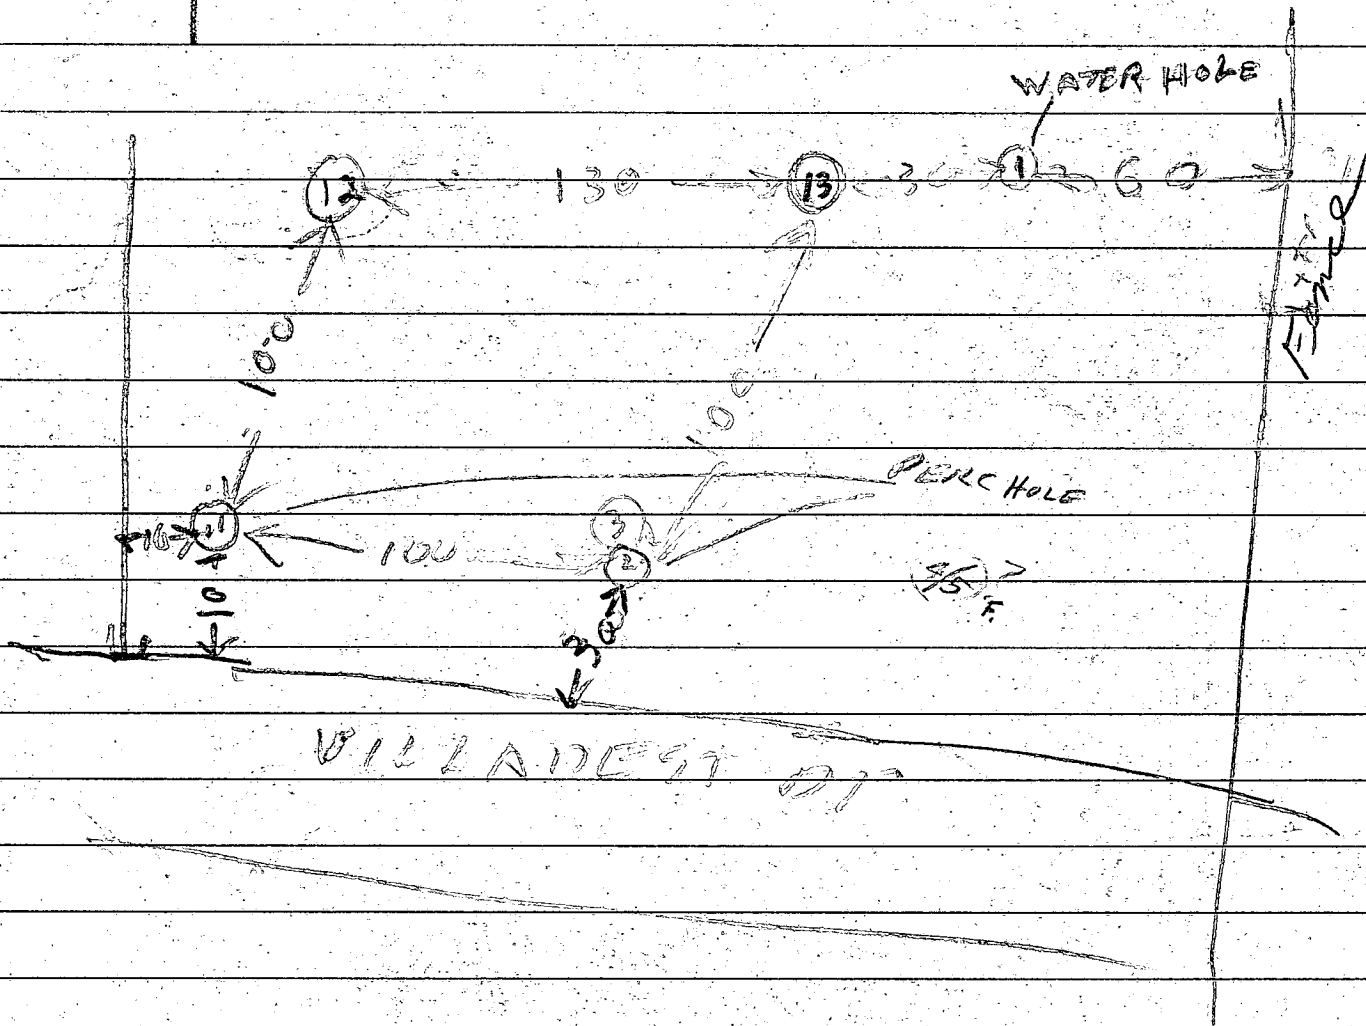 WATER HOLE
12 130 13 30 1 60
Fence
100
100
PERC HOLE
11 3
10 100 2
10
30
VILLADEST DR